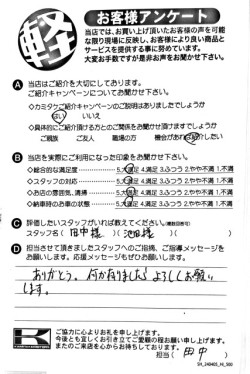 軽
お客様アンケート
当店では、お買い上げ頂いたお客様の声を可能
な限り現場に反映し、お客様により良い商品と
サービスを提供する事に努めています。
大変お手数ですが是非お声をお聞かせ下さい。
A 当店はご紹介を大切にしております。
ご紹介キャンペーンについてお聞かせ下さい。
◇カミタケご紹介キャンペーンのご説明はありましたでしょうか
はい いいえ
◇具体的にご紹介頂ける方とのご関係をお聞かせ頂けますでしょうか
ご親族 ご友人 職場の方 機会があれば紹介したい
B 当店を実際にご利用になった印象をお聞かせ下さい。
◇総合的な満足度 5.大満足 4.満足 3.ふつう 2.やや不満 1.不満
◇スタッフの対応 5.大満足 4.満足 3.ふつう 2.やや不満 1.不満
◇お店の雰囲気、清掃 5.大満足 4.満足 3.ふつう 2.やや不満 1.不満
◇納車時のお車の状態 5.大満足 4.満足 3.ふつう 2.やや不満 1.不満
C 評価したいスタッフがいれば教えてください。(複数回答可)
スタッフ名( 田中様 )( 池田様 )
D 担当させて頂きましたスタッフへのご指摘、ご指導メッセージを
お願いします。応援メッセージもぜひお願いします。
ありがとう。何か有りましたらよろしくお願い
します。
ご協力に心よりお礼を申し上げます。
今後とも宜しくお引き立てご愛顧の程お願い申し上げます。
またのご来店を心からお待ちしております。
担当( 田中 )